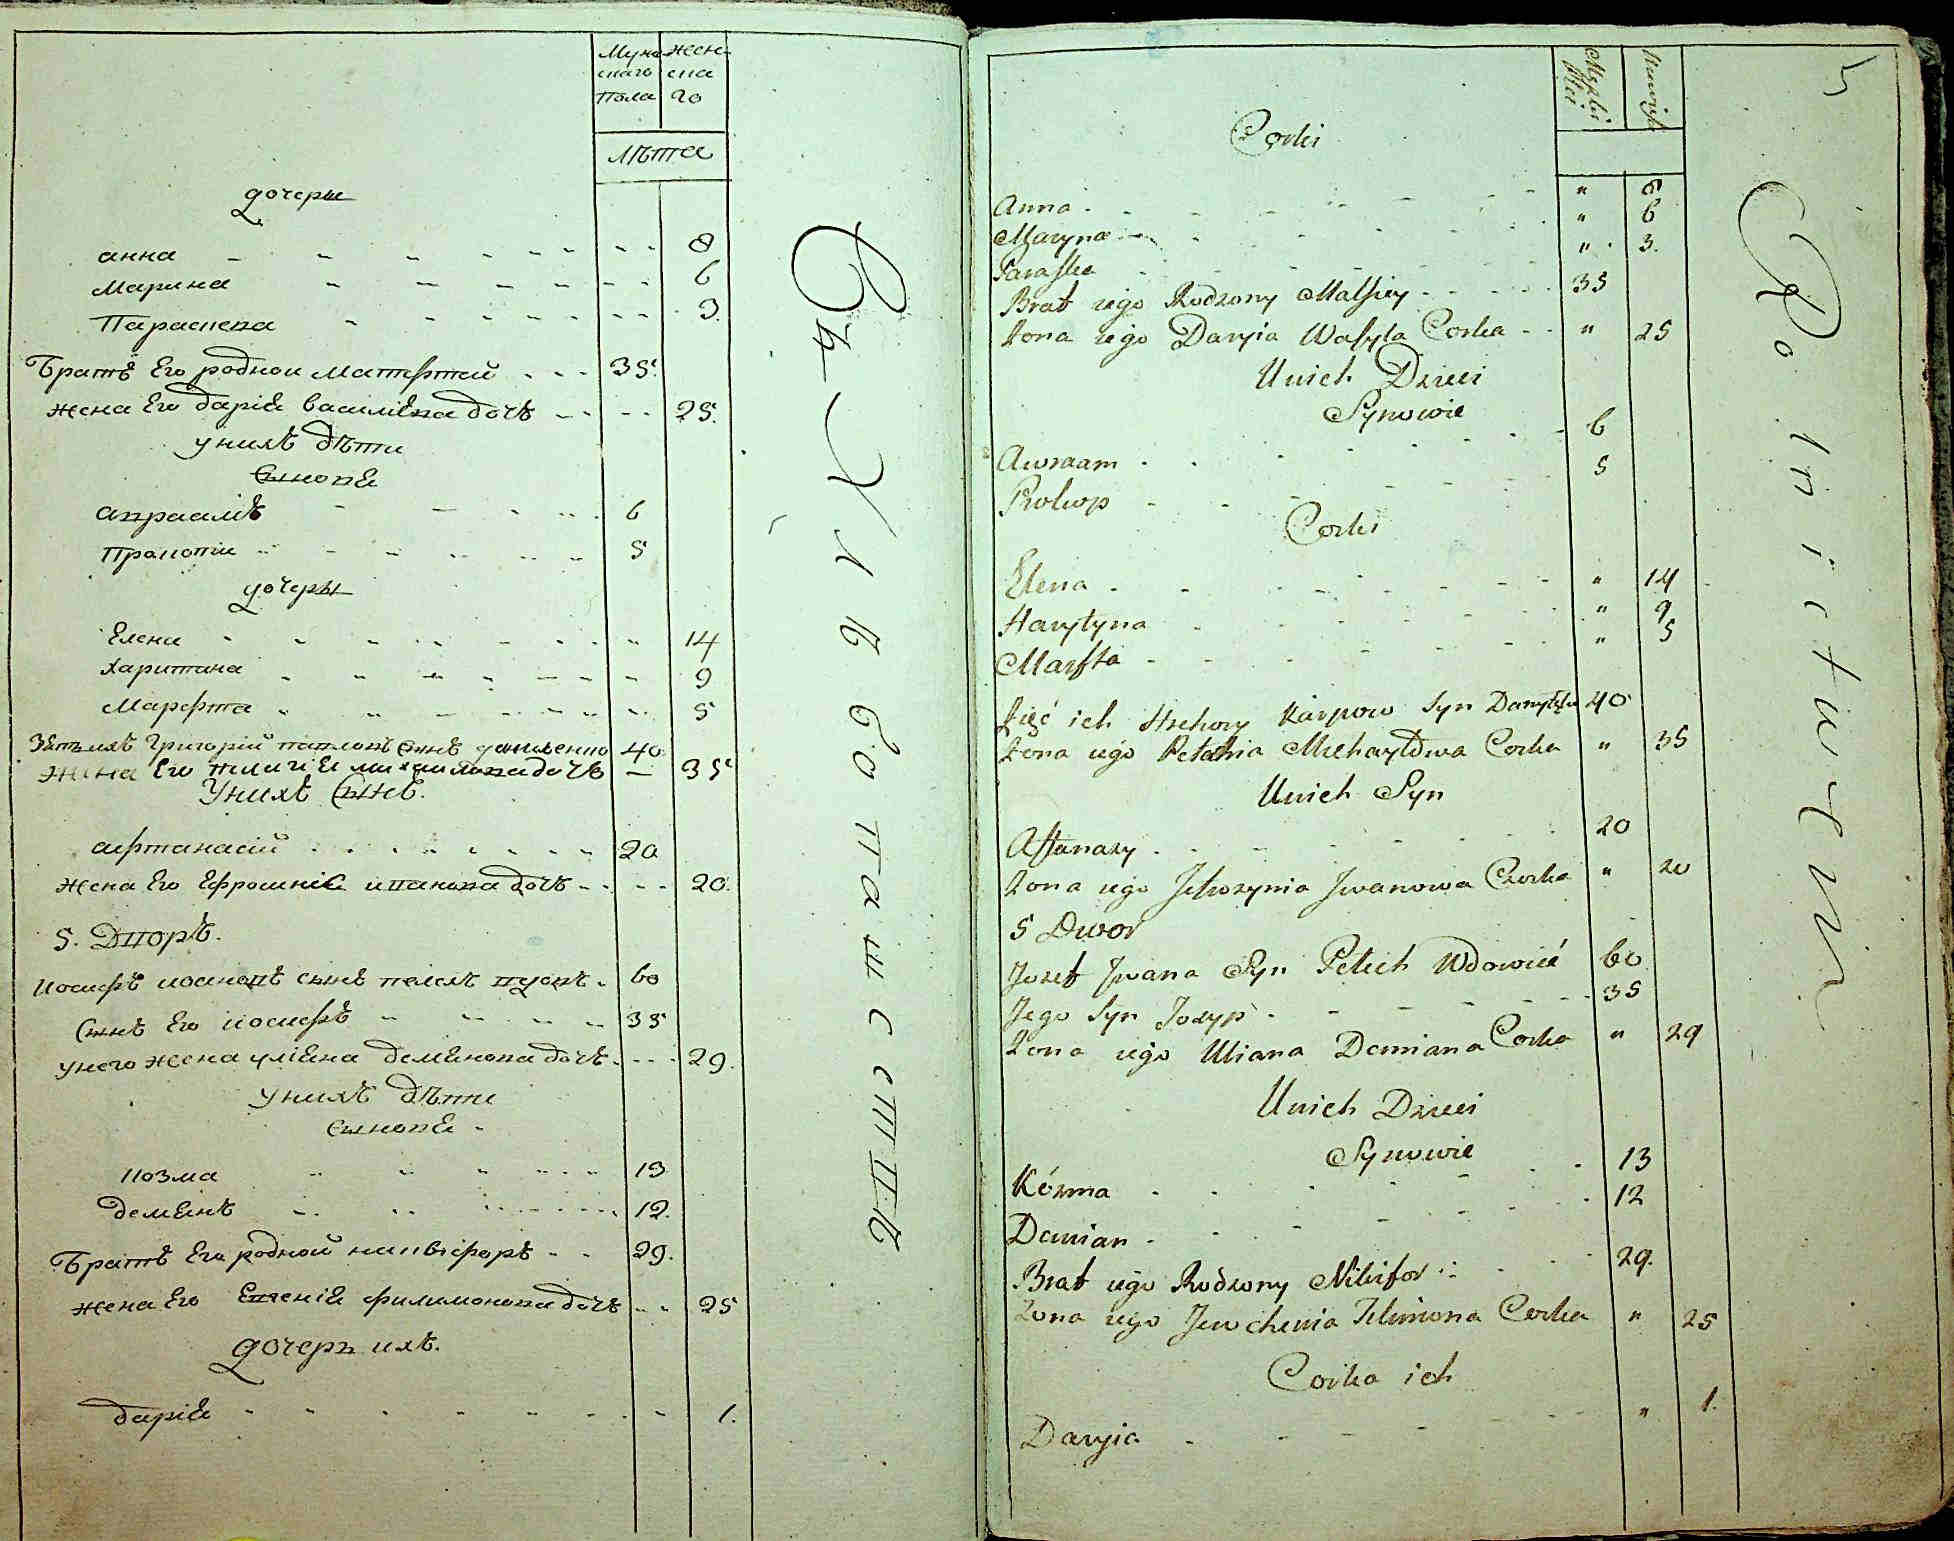 Мужескаго Пола
Женска го
Лѣта
дочеры
анна 8
Марина 6
Параскева 3.
Братъ Его родной Матфтей 35.
жена Его дарія василіева дочь 25.
у нихъ дѣти
Сынове
авраамъ 6
Прокопи 5
дочеры
Елена 14
Харитина 9
Марфта 5
Зять ихъ Григорій сынъ 40
жена Его михаилова дочь — 35
У нихъ Сынъ.
афтанасій 20
жена Его Ефросинія иванова дочь 20.
5. Дворъ.
Иосифъ сынъ 60
Сынъ Его иосифъ 35
у него жена уліяна демянова дочь 29.
у нихъ дѣти
сынове
козма 13
демянъ 12.
Братъ Его родной никифоръ 29.
жена Его Евгенія филимонова дочь 25
дочерь ихъ.
дарія 1.
Съ Хлѣбопашествѣ
5
Męzki Płci
Corki
Anna " 8
Maryna " 6
Paraska " 3.
Brat iego Rodzony Matfiey 35
Żona iego Daryia Wasyla Corka " 25
U nich Dzieci
Synowie
Awraam 6
Prokop 5
Corki
Elena " 14
Harytyna " 9
Marfta " 5
Zięć ich Hrehory Karpow Syn 40
Żona iego Michayłowa Corka " 35
U nich Syn
Aftanazy 20
Żona iego Iwanowa Corka " 20
5 Dwor
Jozef Iwana Syn Wdowiec 60
Jego Syn Jozyp 35
Żona iego Uliana Demiana Corka " 29
U nich Dzieci
Synowie
Kózma 13
Demian 12
Brat iego Rodzony Nikifor 29.
Żona iego Jewchenia Filimona Corka " 25
Corka ich
Daryia " 1.
Rolnictwem